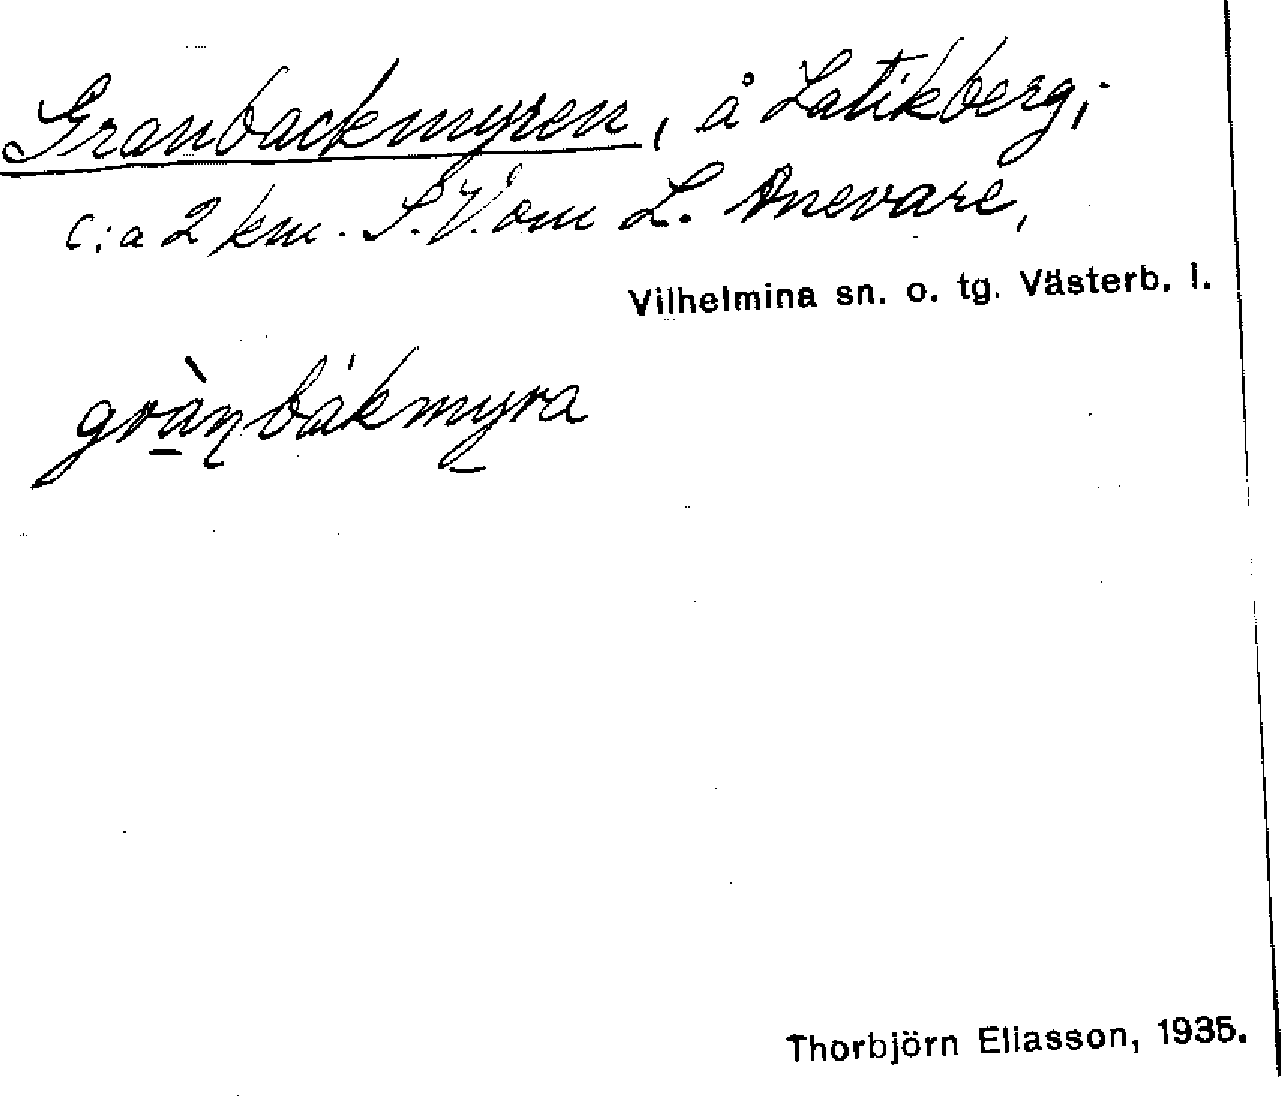 Granbackmyren, å Latikberg,
c:a 2 km. S.V. om L. Anevare,
Vilhelmina sn. o. tg. Västerb. l.
grànbákmyra
Thorbjörn Eliasson, 1935.